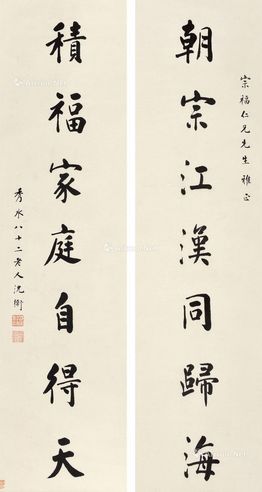 宗福仁兄先生雅正
朝宗江漢同歸海
積福家庭自得天
秀水八十二老人沈衛